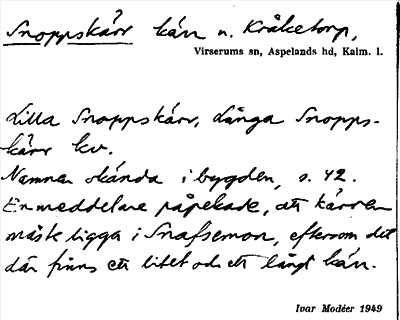 Snoppskärr kärr n. Kråketorp,
Virserums sn, Aspelands hd, Kalm. l.
Lilla Snoppskärr, Långa Snopps-
kärr kv.
Namnen okända i bygden, s. 42.
En meddelare påpekade, att kärren
måste ligga i Snafsemon, eftersom det
där finns ett litet och ett långt kärr.
Ivar Modéer 1949